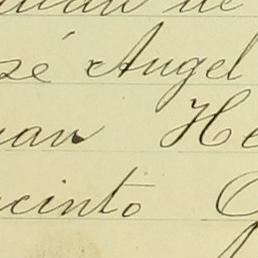 de
sé Angel
uan He
cinto